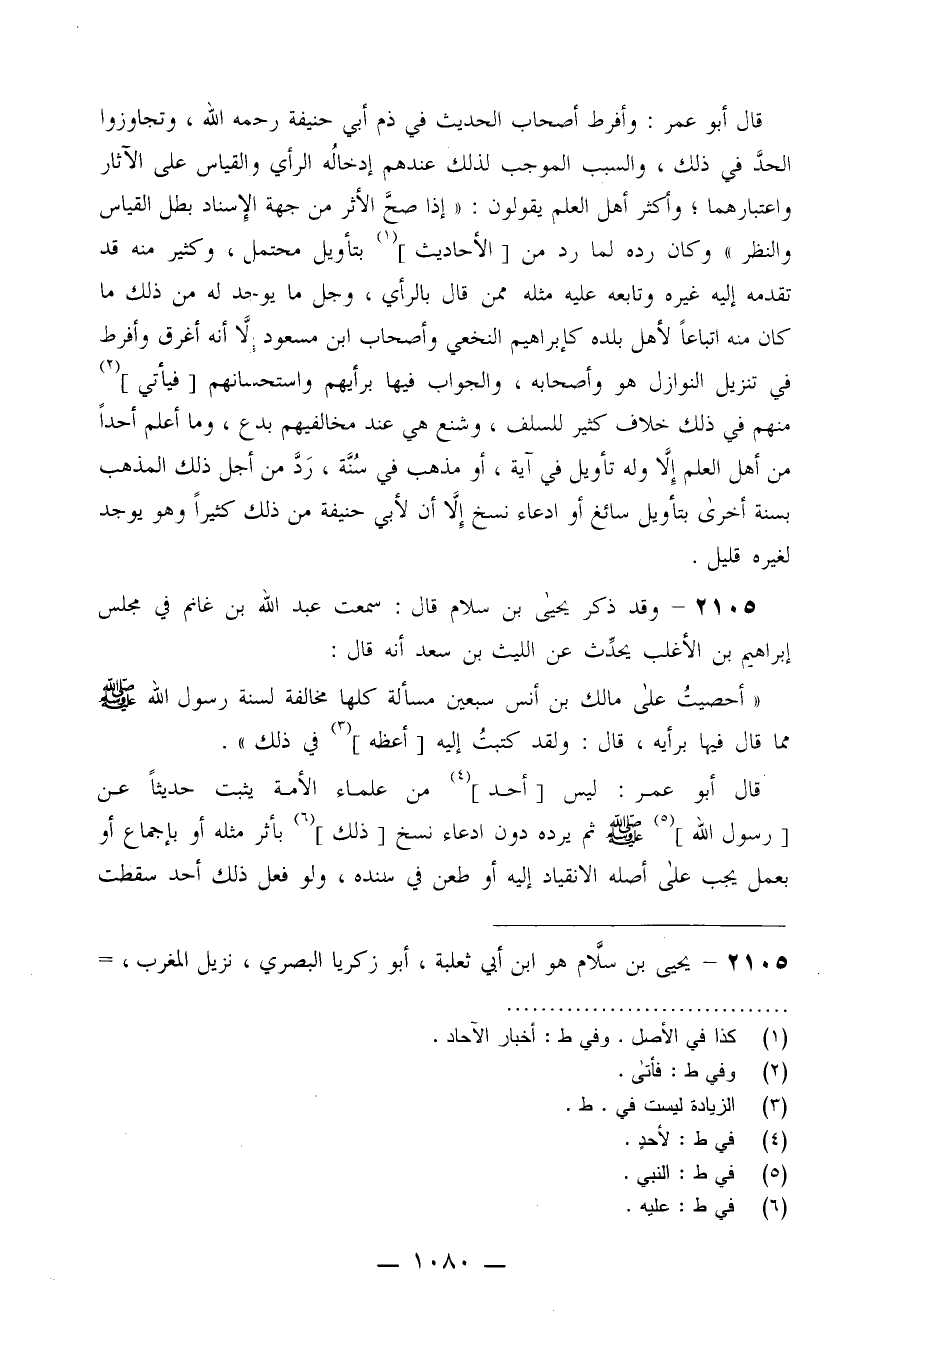 قال أبو عمر : وأفرط أصحاب الحديث في ذم أبي حنيفة رحمه الله ، وتجاوزوا
الحدَّ في ذلك ، والسبب الموجب لذلك عندهم إدخالُه الرأي والقياس على الآثار
واعتبارهما ؛ وأكثر أهل العلم يقولون : « إذا صحَّ الأثر من جهة الإسناد بطل القياس
والنظر » وكان رده لما رد من [ الأحاديث ](١) بتأويل محتمل ، وكثير منه قد
تقدمه إليه غيره وتابعه عليه مثله ممن قال بالرأي ، وجل ما يوجد له من ذلك ما
كان منه اتباعاً لأهل بلده كإبراهيم النخعي وأصحاب ابن مسعود إلَّا أنه أغرق وأفرط
في تنزيل النوازل هو وأصحابه ، والجواب فيها برأيهم واستحسانهم [ فيأتي ](٢)
منهم في ذلك خلاف كثير للسلف ، وشنع هي عند مخالفيهم بدع ، وما أعلم أحداً
من أهل العلم إلَّا وله تأويل في آية ، أو مذهب في سُنَّة ، رَدَّ من أجل ذلك المذهب
بسنة أخرىٰ بتأويل سائغ أو ادعاء نسخ إلَّا أن لأبي حنيفة من ذلك كثيراً وهو يوجد
لغيره قليل .
٢١٠٥ – وقد ذكر يحيىٰ بن سلام قال : سمعت عبد الله بن غانم في مجلس
إبراهيم بن الأغلب يحدِّث عن الليث بن سعد أنه قال :
« أحصيتُ علىٰ مالك بن أنس سبعين مسألة كلها مخالفة لسنة رسول الله ﷺ
مما قال فيها برأيه ، قال : ولقد كتبتُ إليه [ أعظه ](٣) في ذلك » .
قال أبو عمر : ليس [ أحد ](٤) من علماء الأمة يثبت حديثاً عن
[ رسول الله ](٥) ﷺ ثم يرده دون ادعاء نسخ [ ذلك ](٦) بأثر مثله أو بإجماع أو
بعمل يجب علىٰ أصله الانقياد إليه أو طعن في سنده ، ولو فعل ذلك أحد سقطت
٢١٠٥ – يحيى بن سلَّام هو ابن أبي ثعلبة ، أبو زكريا البصري ، نزيل المغرب ، =
(١) كذا في الأصل . وفي ط : أخبار الآحاد .
(٢) وفي ط : فأتىٰ .
(٣) الزيادة ليست في . ط .
(٤) في ط : لأحدٍ .
(٥) في ط : النبي .
(٦) في ط : عليه .
— ١٠٨٠ —